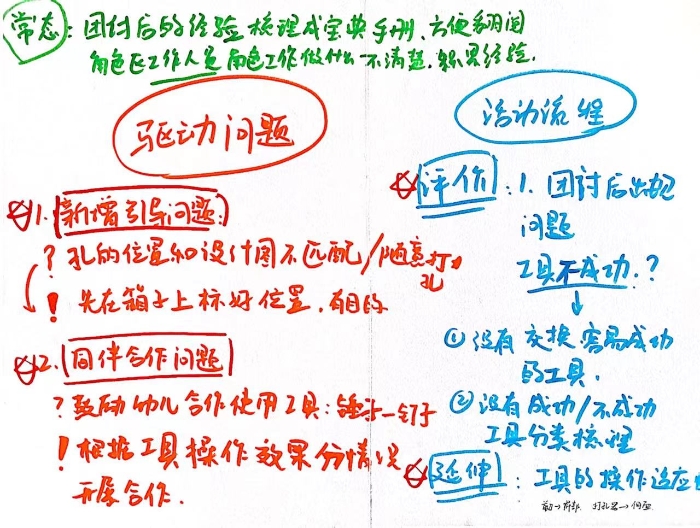 常态：团讨后的经验梳理成宝典手册，方便翻阅
角色区工作人员角色工作做什么不清楚，积累经验．
驱动问题
1. 新增引导问题：
？孔的位置和设计图不匹配/随意打孔
！先在箱子上标好位置，有目的
2. 同伴合作问题
？鼓励幼儿合作使用工具：锤子—钉子
！根据工具操作效果分情况
开展合作．
活动流程
评价：1. 团讨后出现
问题
工具不成功．？
① 没有交换容易成功
的工具．
② 没有成功/不成功
工具分类梳理
延伸：工具的操作适应